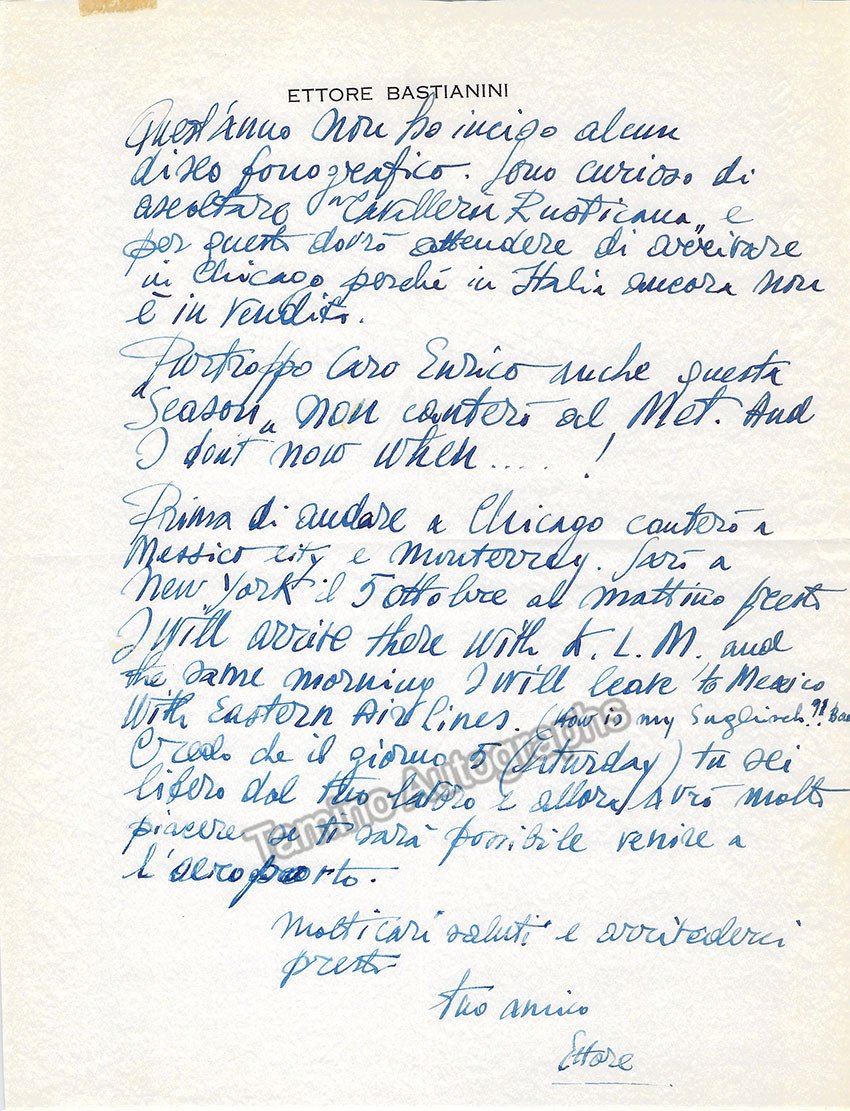 ETTORE BASTIANINI
Quest'anno non ho inciso alcun
disco fonografico. Sono curioso di
ascoltare "Cavalleria Rusticana" e
per questo dovrò attendere di arrivare
in Chicago perché in Italia ancora non
è in vendita.
Purtroppo Caro Enrico anche questa
"Season" non canterò al Met. And
I don't now when..... !
Prima di andare a Chicago canterò a
Messico city e Monterray. Sarò a
New York il 5 ottobre al mattino presto
I will arrive there with K. L. M. and
the same morning I will leave to Mexico
With Eastern Air lines. (How is my Suglisch?! Bad
Credo che il giorno 5 (Saturday) tu sei
libero dal tuo lavoro e allora avrò molto
piacere se ti sarà possibile venire a
l'aeroporto.
Molti cari saluti e arrivederci
presto
tuo amico
Ettore
Tamino Autographs